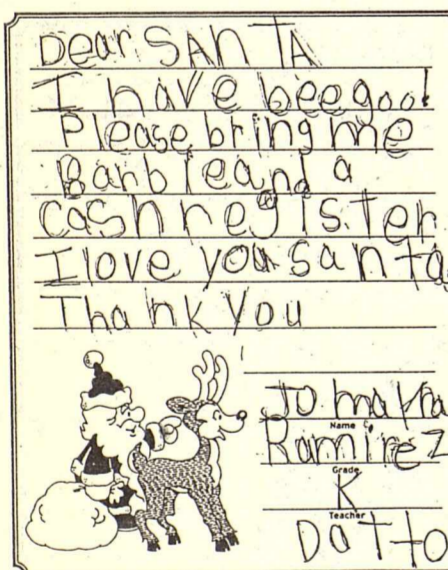 Dear SAnTA
I have bee good
Please bring me
Barbie and a
cash register
I love you santa
Thank You
Name
Ramirez
Grade
K
Teacher
DaTTo